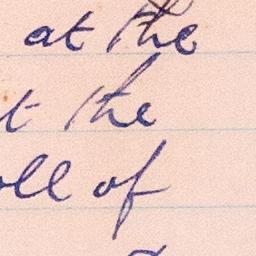 at the
t the
oll of